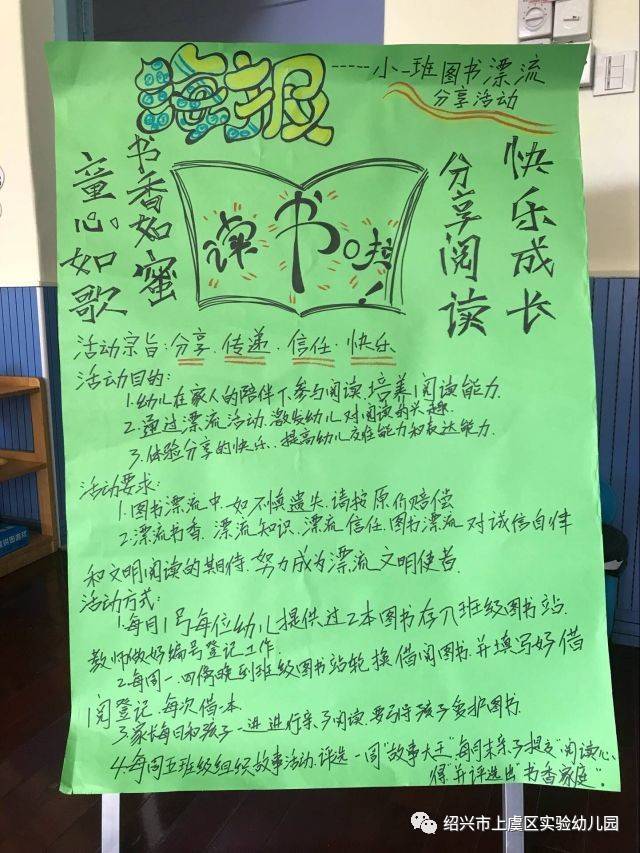 海报-----小一班图书漂流
分享活动
书香如蜜
童心如歌
读书啦!
快乐成长
分享阅读
活动宗旨:分享、传递、信任、快乐
活动目的:
1.幼儿在家人的陪伴下,参与阅读,培养阅读能力.
2.通过漂流活动,激发幼儿对阅读的兴趣.
3.体验分享的快乐、提高幼儿交往能力和表达能力.
活动要求:
1.图书漂流中,如不慎遗失,请按原价赔偿
2.漂流书香、漂流知识、漂流信任.图书漂流对诚信自律
和文明阅读的期待.努力成为漂流文明使者.
活动方式:
1.每月1号每位幼儿提供过2本图书存入班级图书站.
教师做好编号登记工作.
2.每周一、四傍晚到班级图书站轮换借阅图书.并填写好借
阅登记、每次借一本.
3.家长每日和孩子一进进行亲子阅读.要引导孩子爱护图书.
4.每周五班级组织故事活动.评选一周"故事大王"每月末亲子提交"阅读心
得"并评选出"书香家庭".
绍兴市上虞区实验幼儿园